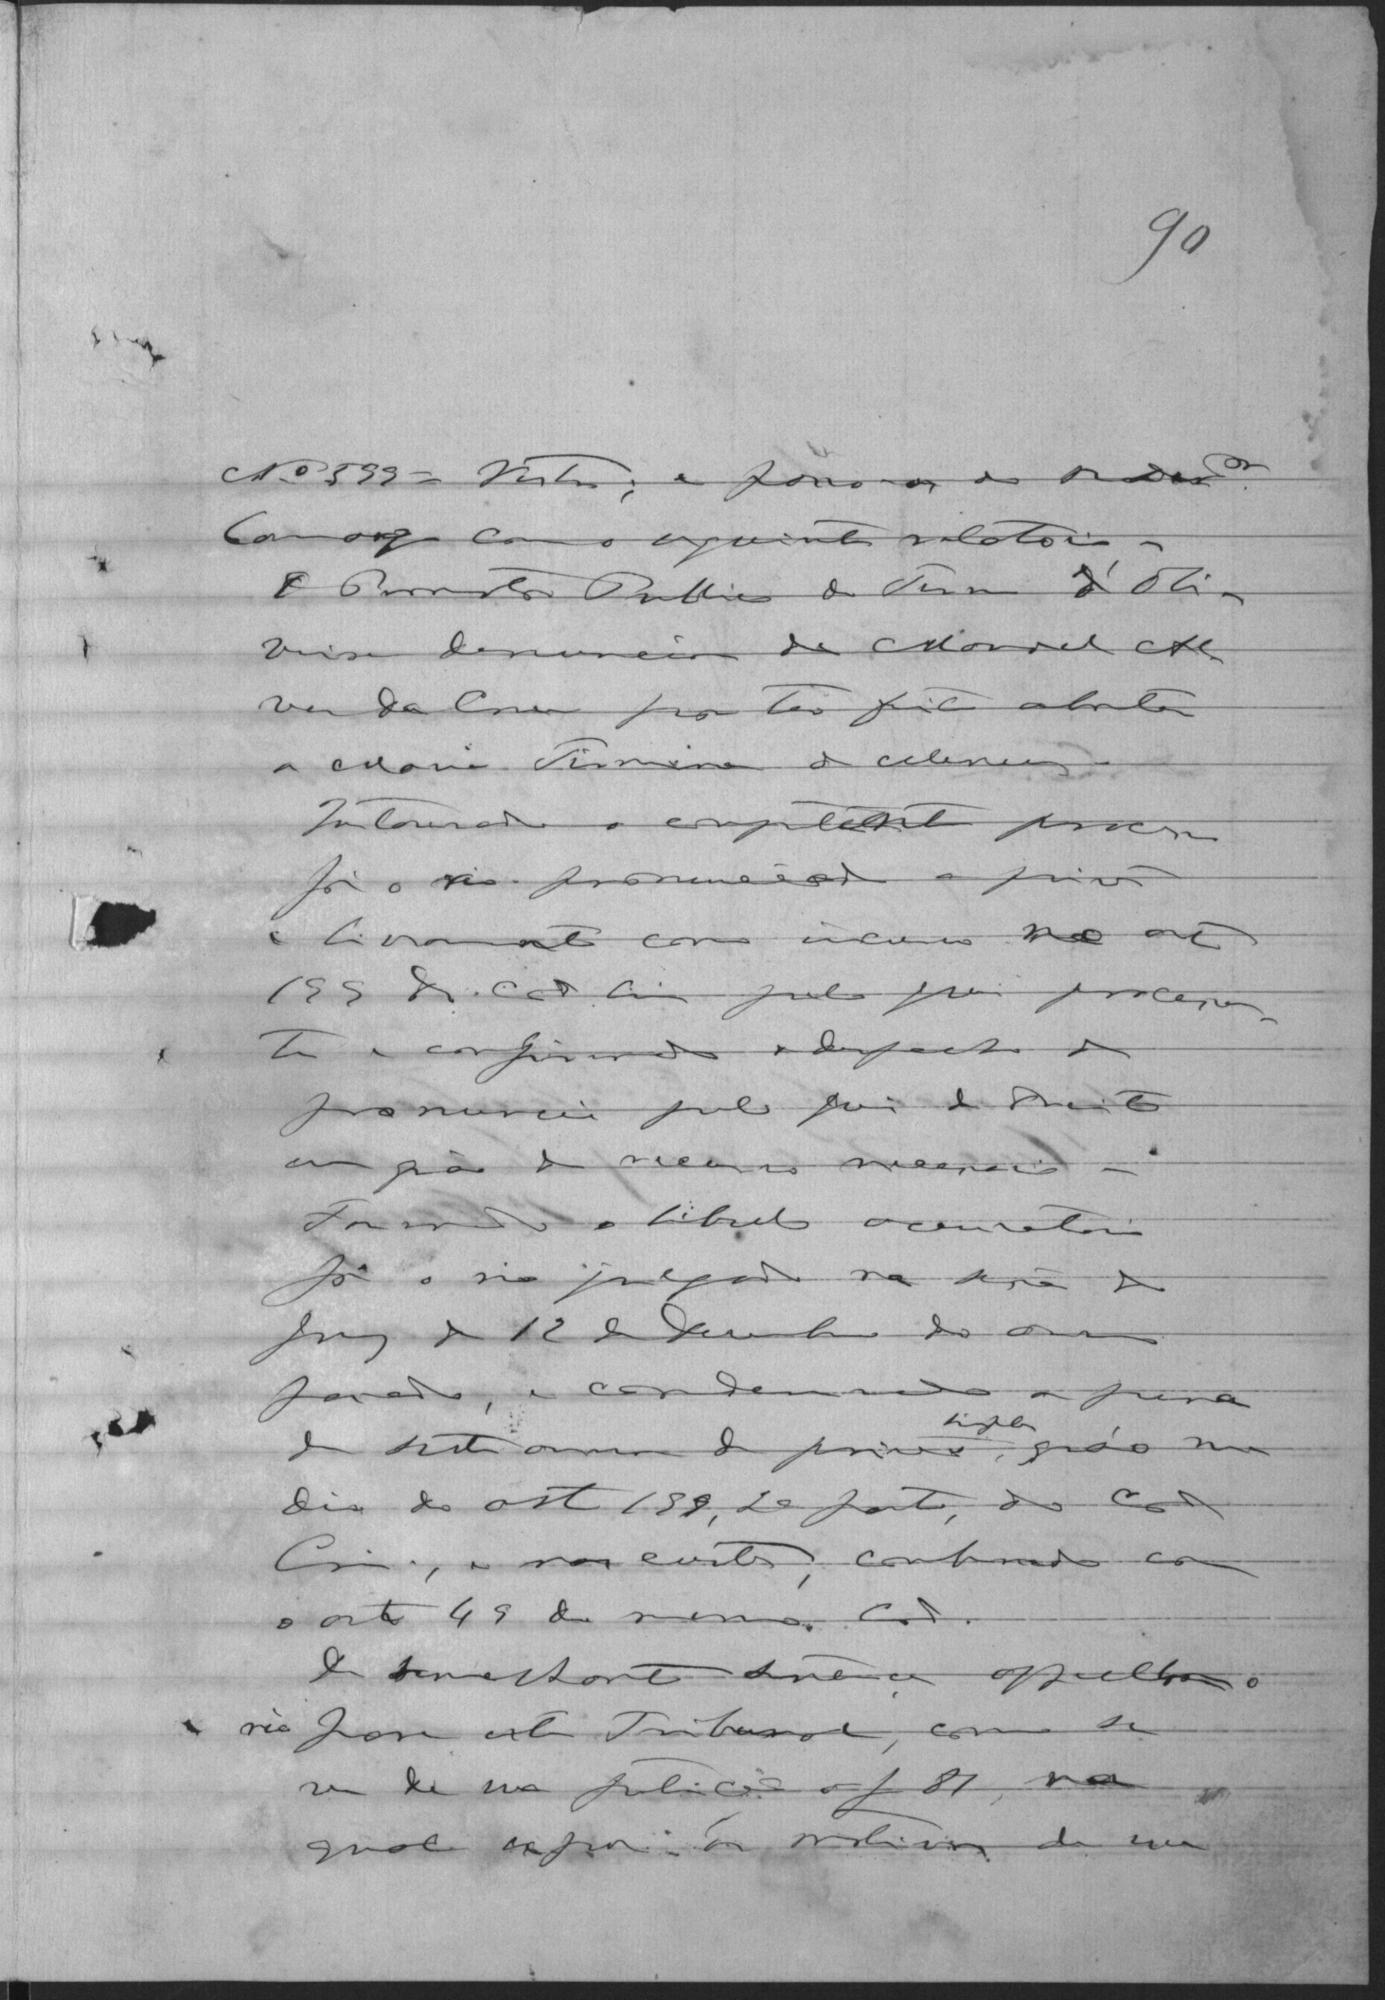 90
Nº 599 = Vistos, e passou ao Desor
Camargo com o seguinte relatorio -
O Promotor Publico do Termo d'Oli-
veira denunciou de Manoel Al-
ves da Cruz por ter feito abortar
a Maria Firmina de
Instaurado o competente processo
foi o réo pronunciado a prisão
e livramento como incurso no art
199 do Cod Crim pelo juiz processan-
te e confirmado o despacho de
pronuncia pelo Juiz de Direito
em gráo de recurso necessario -
Formado o libello accusatorio
foi o réo julgado na sessão do
Jury de 12 de Dezembro do anno
passado, e condemnado a pena
de sete annos de prisão simples, gráo me
dio do art 199, 2ª parte, do Cod
Crim., e nas custas, combinado com
o arto 49 do mesmo Cod.
De semelhante sentença appellou o
réo para este Tribunal, como se
ve de sua petição a f 81, na
qual expoz os motivos de sua